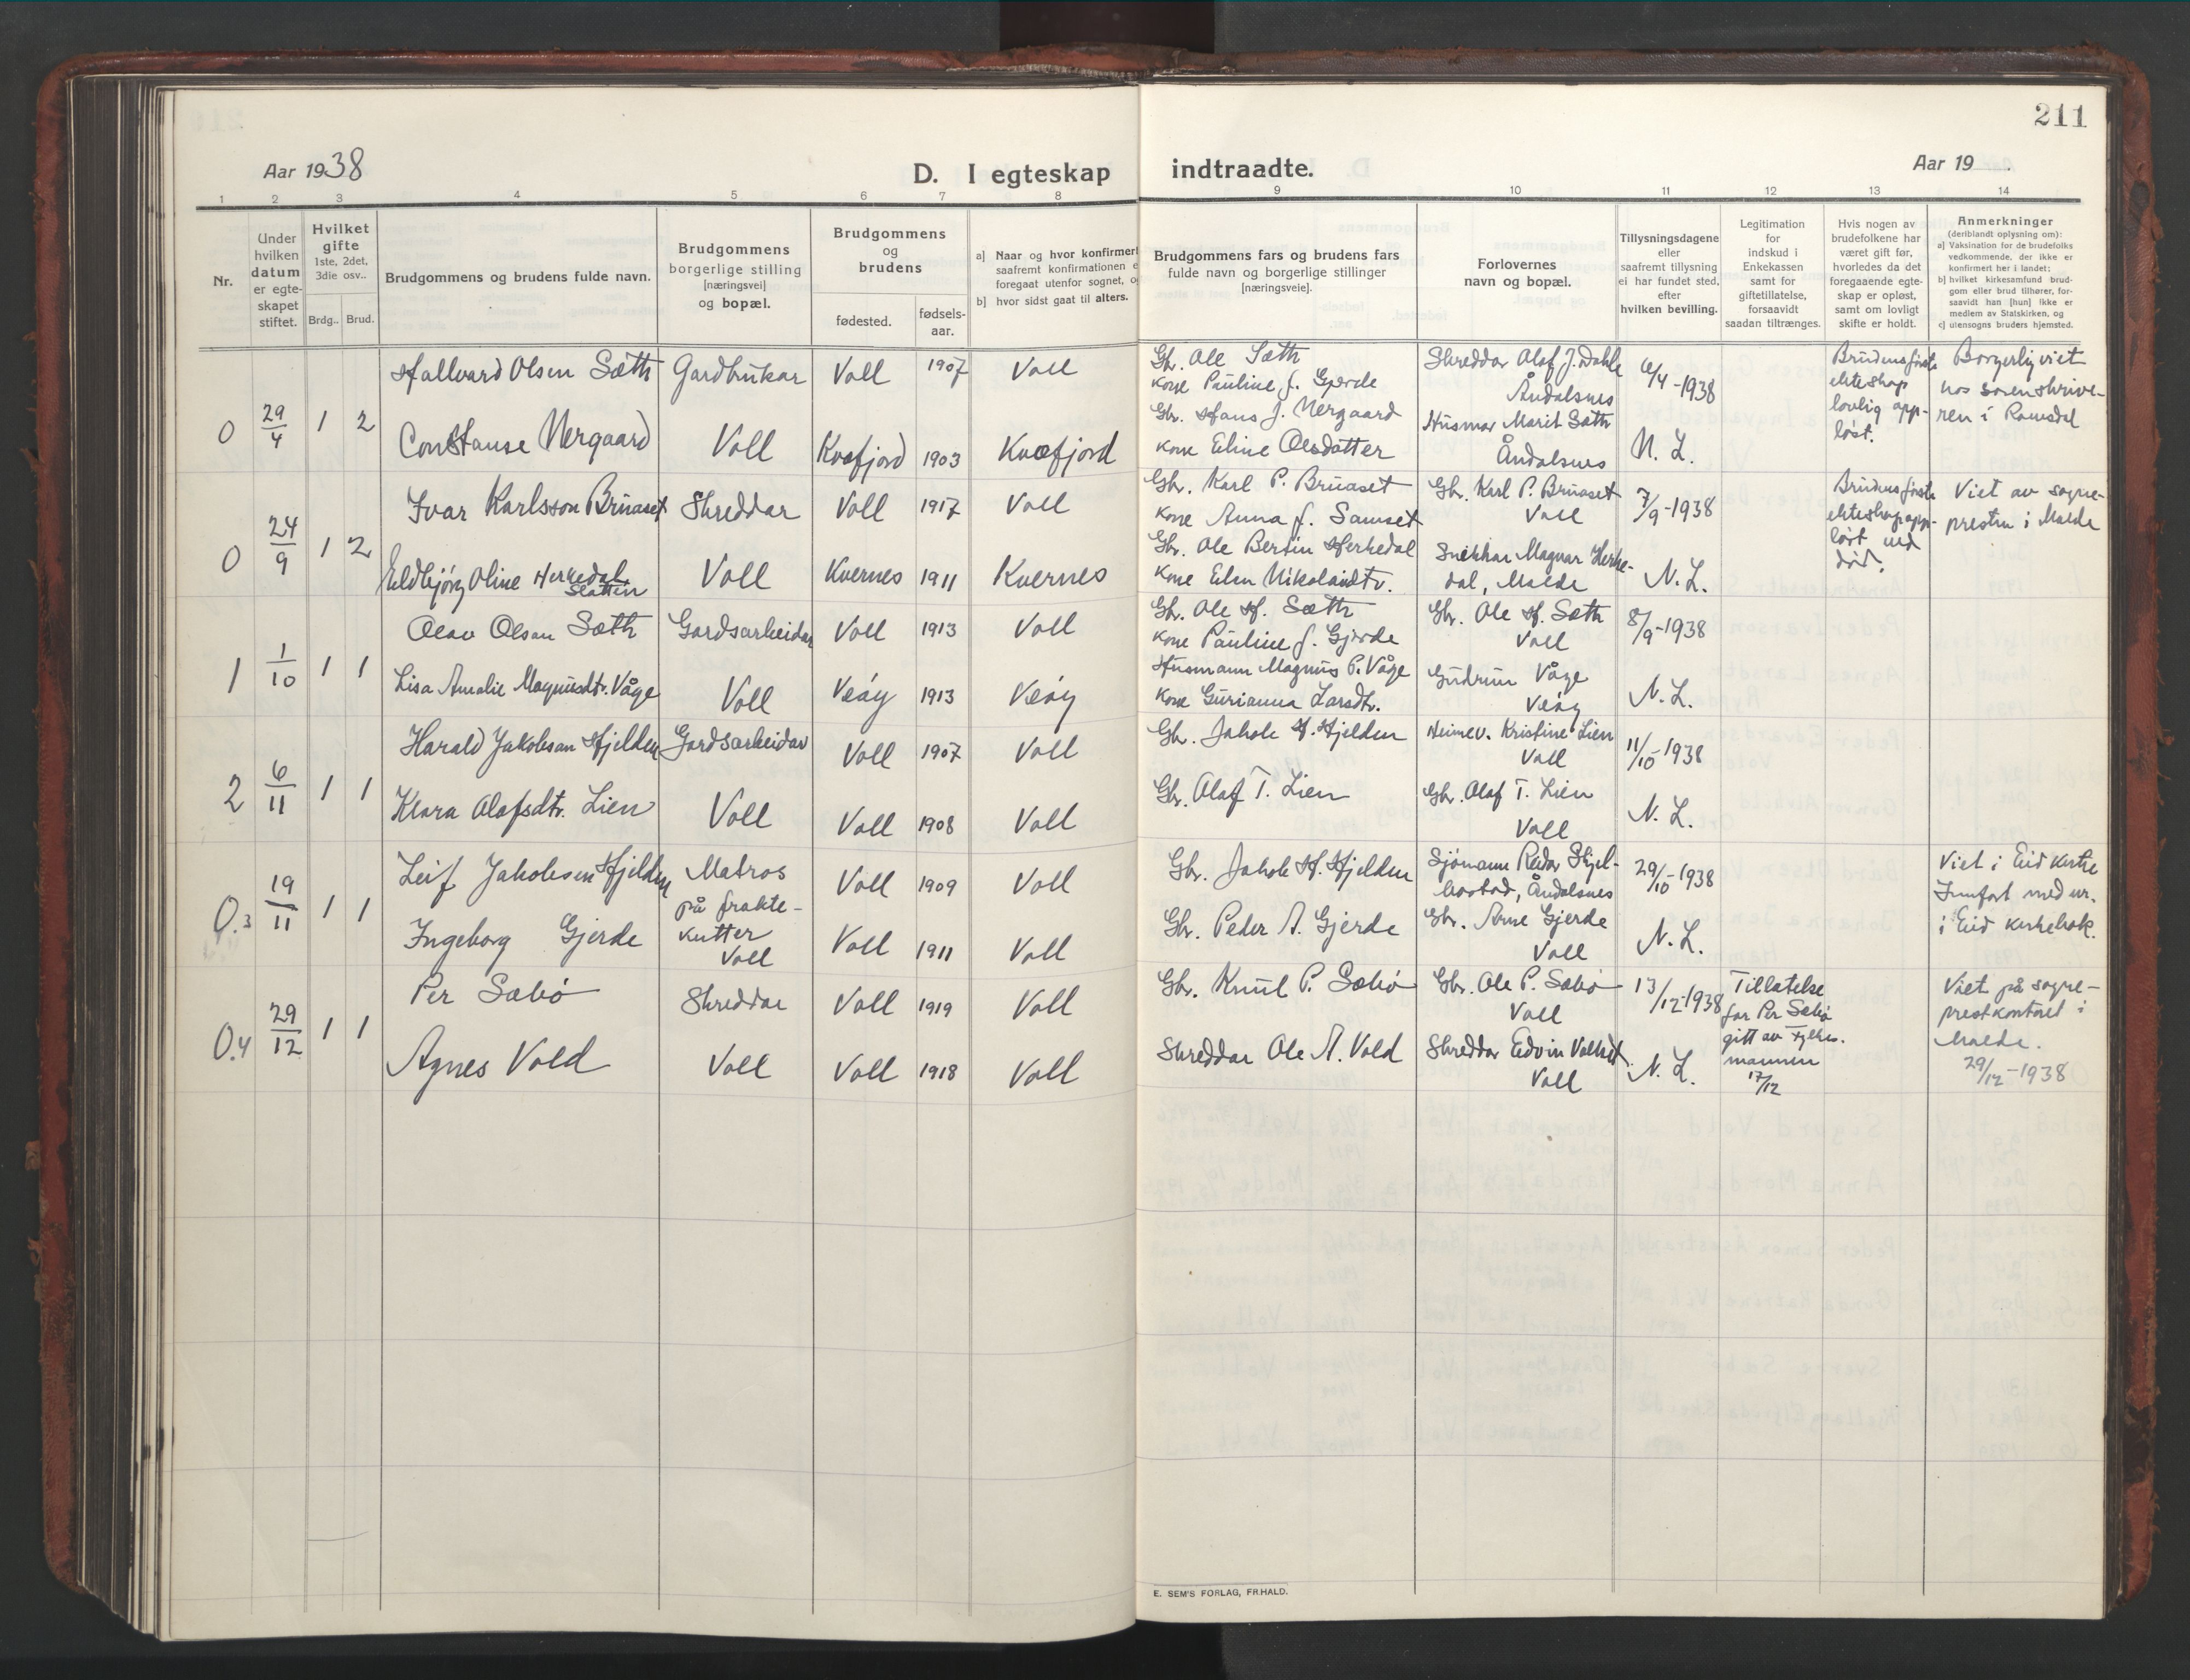 211
Aar 1938
D. I egteskap indtraadte.
Aar 19 .
1 2 3 4 5 6 7 8 9 10 11 12 13 14
Nr.
Under
hvilken
datum
er egte-
skapet
stiftet.
Hvilket
gifte
1ste, 2det,
3die osv..
Brdg.. Brud.
Brudgommens og brudens fulde navn.
Brudgommens
borgerlige stilling
[næringsvei]
og bopæl.
Brudgommens
og
brudens
fødested.
fødsels-
aar.
a] Naar og hvor konfirmert
saafremt konfirmationen e
foregaat utenfor sognet, og
b] hvor sidst gaat til alters.
Brudgommens fars og brudens fars
fulde navn og borgerlige stillinger
[næringsveie].
Forlovernes
navn og bopæl.
Tillysningsdagene
eller
saafremt tillysning
ei har fundet sted,
efter
hvilken bevilling.
Legitimation
for
indskud i
Enkekassen
samt for
giftetillatelse,
forsaavidt
saadan tiltrænges.
Hvis nogen av
brudefolkene har
været gift før,
hvorledes da det
foregaaende egte-
skap er opløst,
samt om lovligt
skifte er holdt.
Anmerkninger
(deriblandt oplysning om):
a] Vaksination for de brudefolks
vedkommende, der ikke er
konfirmert her i landet:
b] hvilket kirkesamfund brud-
gom eller brud tilhører, for-
saavidt han [hun] ikke er
medlem av Statskirken, og
c] utensogns bruders hjemsted.
0 29/4 1 2
Hallvard Olsen Sæth
Gardbrukar Voll 1907 Voll
Constanse Nergaard
Voll Kvæfjord 1903 Kvæfjord
Gbr. Ole Sæth
kone Pauline f. Gjerde
Gbr. Hans J. Nergaard
kone Eline Olsdatter
Skreddar Olaf J. Dahle
Åndalsnes
Husmor Marit Sæth
Åndalsnes
6/4-1938
N. L.
Brudens første
ekteskap
lovlig opp-
løst.
Borgerlig viet
hos sorenskrive-
ren i Romsdal
0 24/9 1 2
Ivar Karlsson Bruaset
Skreddar Voll 1917 Voll
Eldbjørg Oline Herkedal
Slatten
Voll Kvernes 1911 Kvernes
Gbr. Karl P. Bruaset
kone Anna f. Samset
Gbr. Ole Bertin Herkedal
kone Elen Nikolaidtr.
Gbr. Karl P. Bruaset
Voll
Snikkar Magnar Herke-
dal, Molde
7/9-1938
N. L.
Brudens første
ekteskap opp-
løst ved
død.
Viet av sogne-
presten i Molde
1 1/10 1 1
Olav Olsen Sæth
Gardsarbeidar Voll 1913 Voll
Lisa Amalie Magnusdtr. Våge
Voll Veøy 1913 Veøy
Gbr. Ole H. Sæth
kone Pauline f. Gjerde
Husmann Magnus P. Våge
kone Gurianna Larsdtr.
Gbr. Ole H. Sæth
Voll
Gudrun Våge
Veøy
8/9-1938
N. L.
2 6/11 1 1
Harald Jakobsen Hjelden
Gardsarbeidar Voll 1907 Voll
Klara Olafsdtr. Lien
Voll Voll 1908 Voll
Gbr. Jakob H. Hjelden
Gbr. Olaf T. Lien
Heimev. Kristine Lien
Voll
Gbr. Olaf T. Lien
Voll
11/10-1938
N. L.
0.3 19/11 1 1
Leif Jakobsen Hjelden
Matros
på frakte-
kutter
Voll
Voll 1909 Voll
Ingeborg Gjerde
Voll 1911 Voll
Gbr. Jakob H. Hjelden
Gbr. Peder A. Gjerde
Sjømann Reidar Skjel-
bostad, Åndalsnes
Gbr. Arne Gjerde
Voll
29/10-1938
N. L.
Viet i Eid kirke
Innført med nr.
i Eid kirkebok.
0.4 29/12 1 1
Per Sæbø
Skreddar Voll 1919 Voll
Agnes Vold
Voll Voll 1918 Voll
Gbr. Knut P. Sæbø
Skreddar Ole A. Vold
Gbr. Ole P. Sæbø
Voll
Skreddar Edvin
Voll
13/12-1938
N. L.
Tillatelse
for Per Sæbø
gitt av Fylkes-
mannen
17/12
Viet på sogne-
prestkontoret i
Molde.
29/12-1938
E. SEM'S FORLAG, FR.HALD.